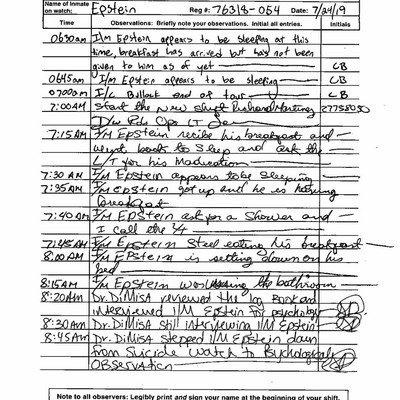 Name of inmate on watch: Epstein Reg #: 76318-054 Date: 7/24/19
Time Observations: Briefly note your observations. Initial all entries. Initials
0630am I/m Epstein appears to be sleeping at this
time, breakfast has arrived but has not been
given to him as of yet CB
0645am I/m Epstein appears to be sleeping CB
0700am I/c Bullock end of tour CB
7:00AM Start the new shift
7:15AM I/M EPstein recibe his breakfast and
went back to sleep and ask the
LT for his Madication
7:30 AM I/M EPstein appears to be sleeping
7:35AM I/M epstein got up and he is having
breakfast
7:40AM I/M EPstein ask for a Shower and
I call the #4
7:45AM I/M EPstein Steel eating his breakfast
8:00AM I/M EPstein is setting down on his
bed
8:15AM I/M EPstein the bathroom
8:20AM Dr. DiMisa reviewed the log Book and
interviewed I/M Epstein for psychology
8:30AM Dr. DiMisa still interviewing I/M Epstein
8:45AM Dr. DiMisa stepped I/M Epstein down
from Suicide Watch to Psychological
OBservation
Note to all observers: Legibly print and sign your name at the beginning of your shift.